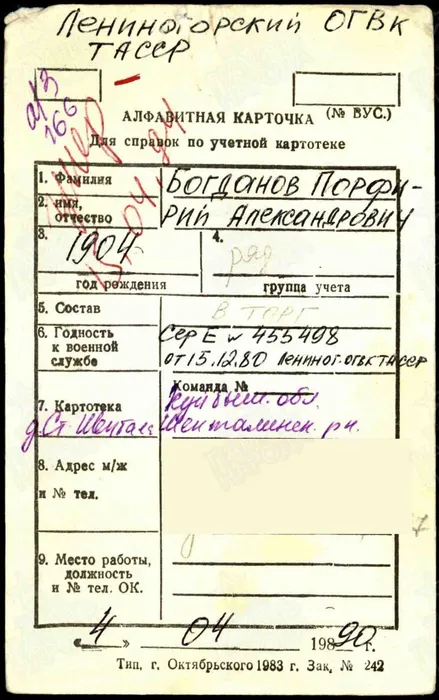 Лениногорский ОГВК
ТАССР
а/з
166
умер
15.04.94
(№ ВУС.)
АЛФАВИТНАЯ КАРТОЧКА
Для справок по учетной картотеке
1. Фамилия Богданов Порфи-
2. имя, отчество рий Александрович
3. 1904 г.
год рождения
4. ряд
группа учета
5. Состав
6. Годность к военной службе Сер Е № 455498
от 15.12.80 Лениног. ОГВК ТАССР
Команда №
7. Картотека Куйбыш. обл.
д. Ст. Шентала Шенталинск. р-н.
8. Адрес м/ж и № тел.
9. Место работы, должность и № тел. ОК.
«4» 04 1990 г.
Тип, г. Октябрьского 1983 г. Зак, № 242